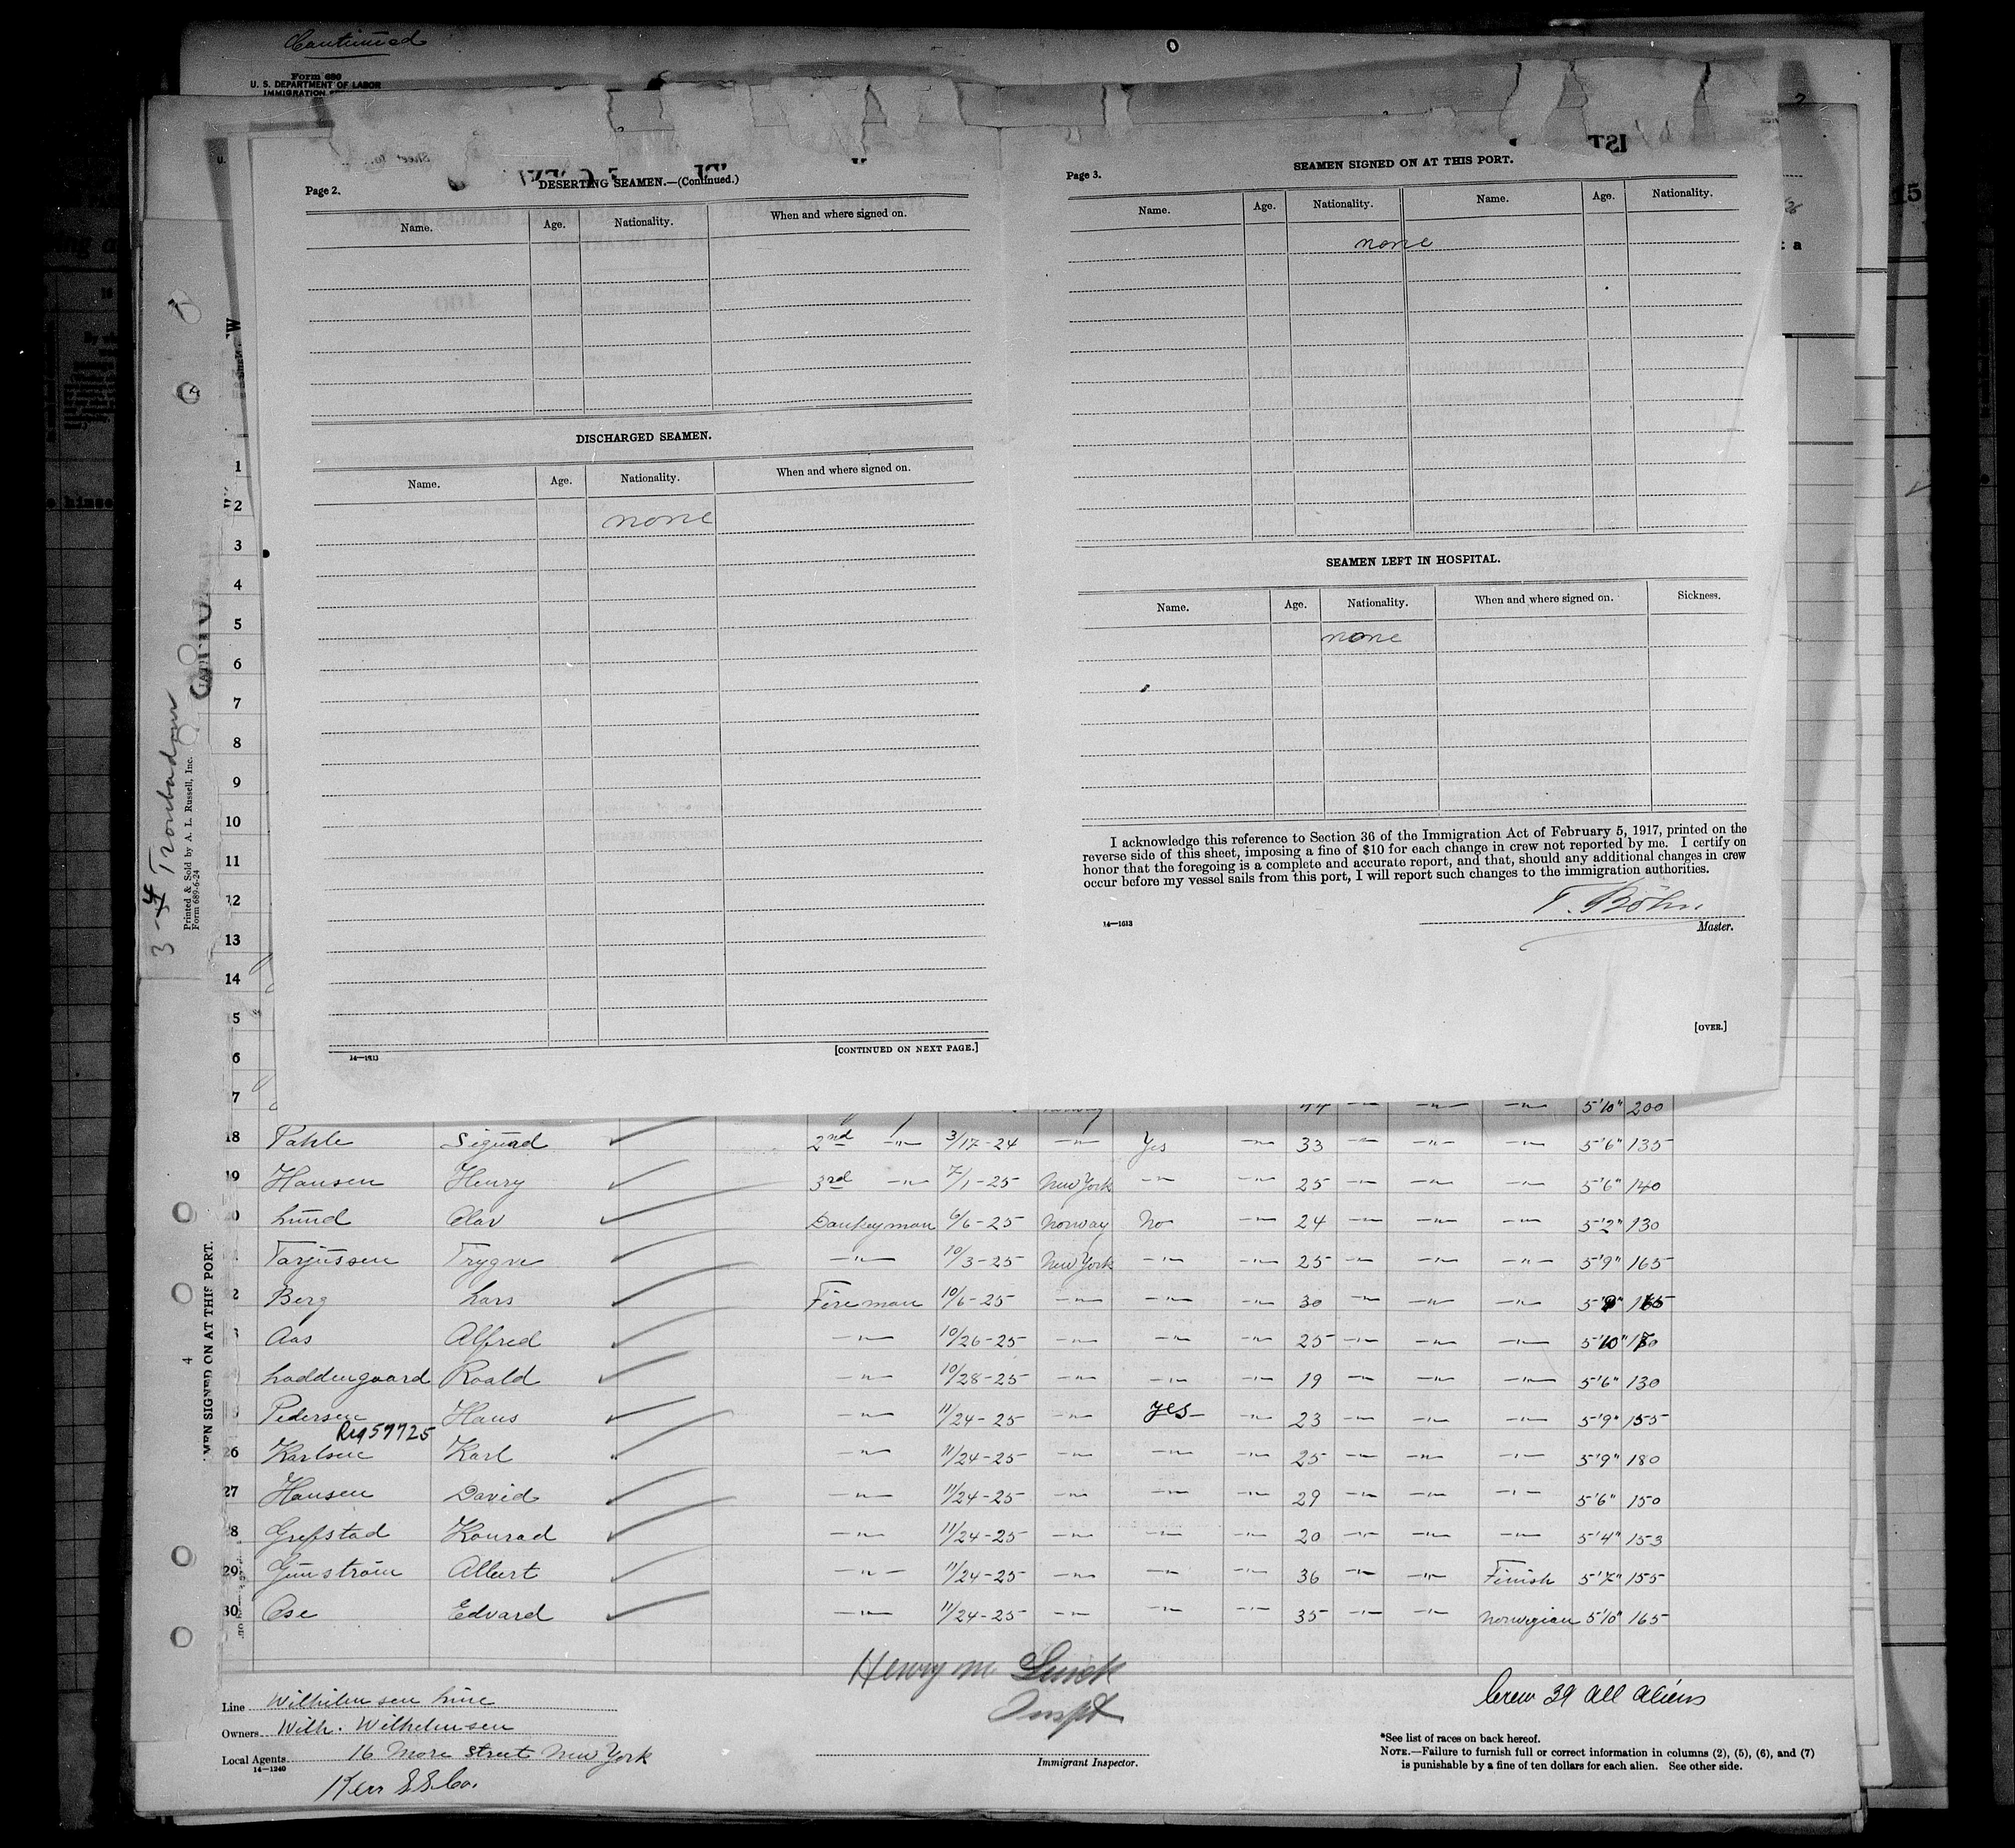 Continued
Form 680
U. S. DEPARTMENT OF LABOR
IMMIGRATION
Page 2.
DESERTING SEAMEN.—(Continued.)
Name. Age. Nationality. When and where signed on.
DISCHARGED SEAMEN.
Name. Age. Nationality. When and where signed on.
none
14—1613
[CONTINUED ON NEXT PAGE.]
Page 3.
SEAMEN SIGNED ON AT THIS PORT.
Name. Age. Nationality. Name. Age. Nationality.
none
SEAMEN LEFT IN HOSPITAL.
Name. Age. Nationality. When and where signed on. Sickness.
none
I acknowledge this reference to Section 36 of the Immigration Act of February 5, 1917, printed on the
reverse side of this sheet, imposing a fine of $10 for each change in crew not reported by me. I certify on
honor that the foregoing is a complete and accurate report, and that, should any additional changes in crew
occur before my vessel sails from this port, I will report such changes to the immigration authorities.
T. Böhn
14—1613
Master.
[OVER.]
15
1
2
3
4
5
6
7
8
9
10
11
12
13
14
5
6
7 44 —"— —"— —"— 5'10" 200
18 Pahle Sigurd 2nd —"— 3/17-24 —"— Yes —"— 33 —"— —"— —"— 5'6" 135
19 Hansen Henry 3rd —"— 7/1-25 New York —"— —"— 25 —"— —"— —"— 5'6" 140
20 Lund Olav Dankeyman 6/6-25 Norway No —"— 24 —"— —"— —"— 5'2" 130
Tarjussen Trygve —"— 10/3-25 New York —"— —"— 25 —"— —"— —"— 5'9" 165
2 Berg Lars Fireman 10/6-25 —"— —"— —"— 30 —"— —"— —"— 5'9" 165
3 Aas Alfred —"— 10/26-25 —"— —"— —"— 25 —"— —"— —"— 5'10" 170
Loddengaard Roald —"— 10/28-25 —"— —"— —"— 19 —"— —"— —"— 5'6" 130
Pedersen Hans —"— 11/24-25 —"— yes —"— 23 —"— —"— —"— 5'9" 155
Reg 57725
26 Karlsen Karl —"— 11/24-25 —"— —"— —"— 25 —"— —"— —"— 5'9" 180
27 Hansen David —"— 11/24-25 —"— —"— —"— 29 —"— —"— —"— 5'6" 150
28 Grefstad Konrad —"— 11/24-25 —"— —"— —"— 20 —"— —"— —"— 5'4" 153
29 Gunstrom Albert —"— 11/24-25 —"— —"— —"— 36 —"— —"— Finish 5'7" 155
30 Ose Edvard —"— 11/24-25 —"— —"— —"— 35 —"— —"— Norwegian 5'10" 165
Henry M
Inspt
Immigrant Inspector.
Crew 39 all aliens
Line Wilhelmsen Line
Owners Wilh. Wilhelmsen
Local Agents 16 More Street New York
14—1240
Kerr S S Co.
*See list of races on back hereof.
NOTE.—Failure to furnish full or correct information in columns (2), (5), (6), and (7)
is punishable by a fine of ten dollars for each alien. See other side.
Printed & Sold by A. L. Russell, Inc.
Form 689-6-24
4
MEN SIGNED ON AT THIS PORT.